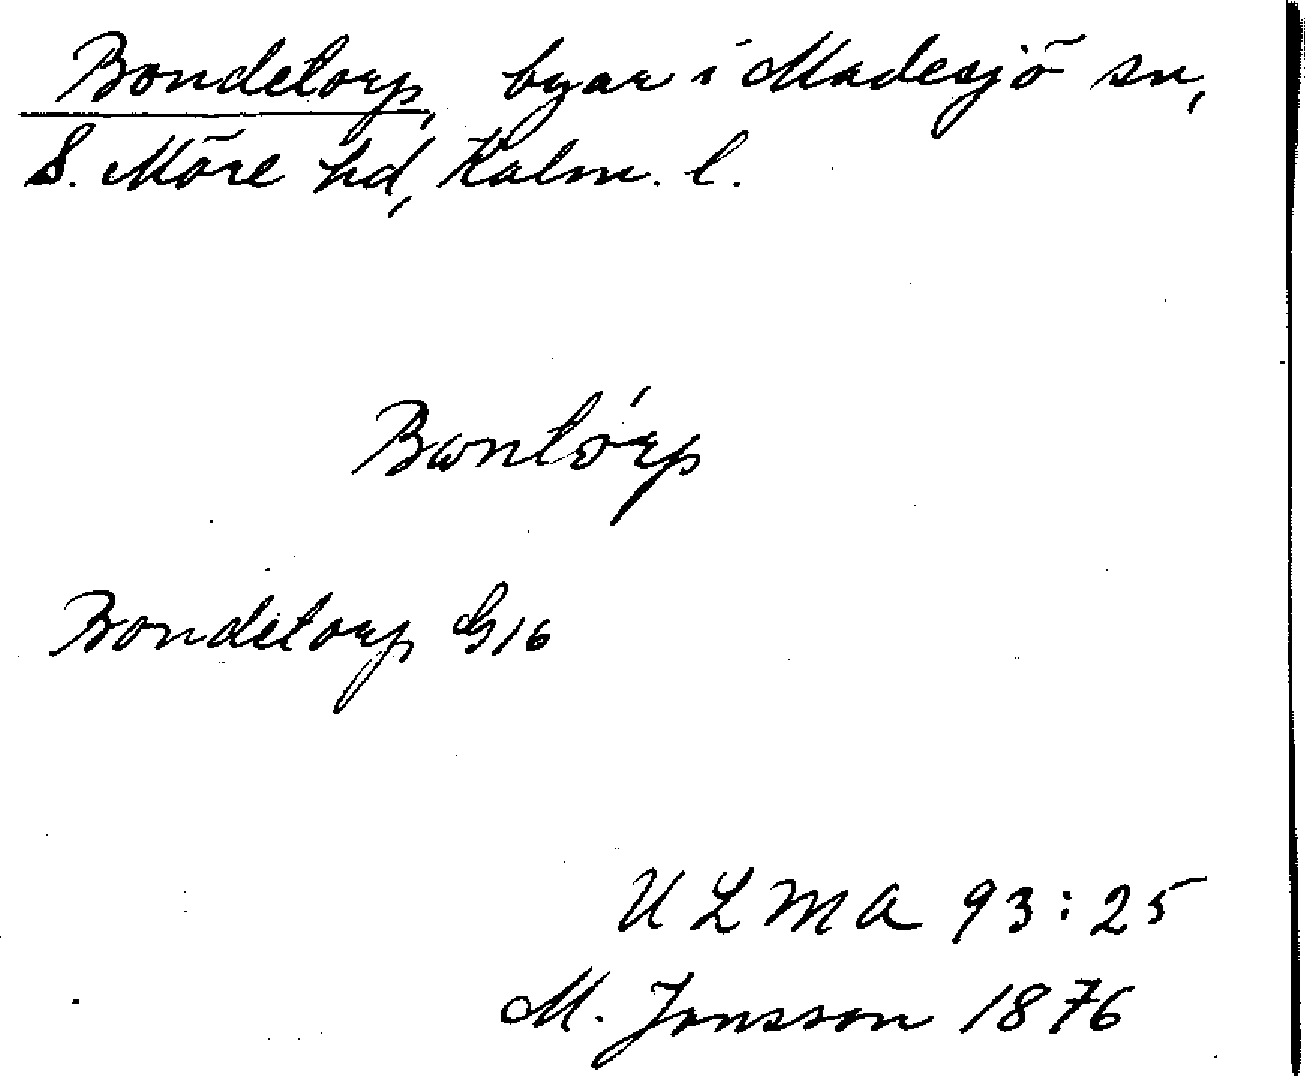 Bondetorp, byar i Madesjö sn,
S. Möre hd, Kalm. l.
Bontórp
Bondetorp G16
ULMA 93:25
M. Jonsson 1876